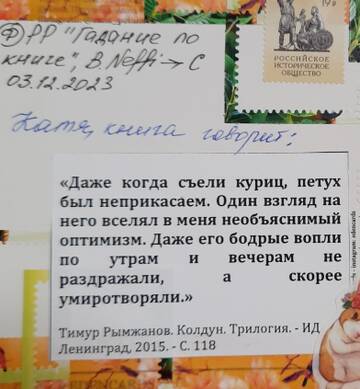 ФРР "Гадание по
книге", B.Neffi → C
03.12.2023
19 р
РОССИЙСКОЕ
ИСТОРИЧЕСКОЕ
ОБЩЕСТВО
Катя, книга говорит:
«Даже когда съели куриц, петух
был неприкасаем. Один взгляд на
него вселял в меня необъяснимый
оптимизм. Даже его бодрые вопли
по утрам и вечерам не
раздражали, а скорее
умиротворяли.»
Тимур Рымжанов. Колдун. Трилогия. - ИД
Ленинград, 2015. - С. 118
instagram: edencards
EDENCARDS